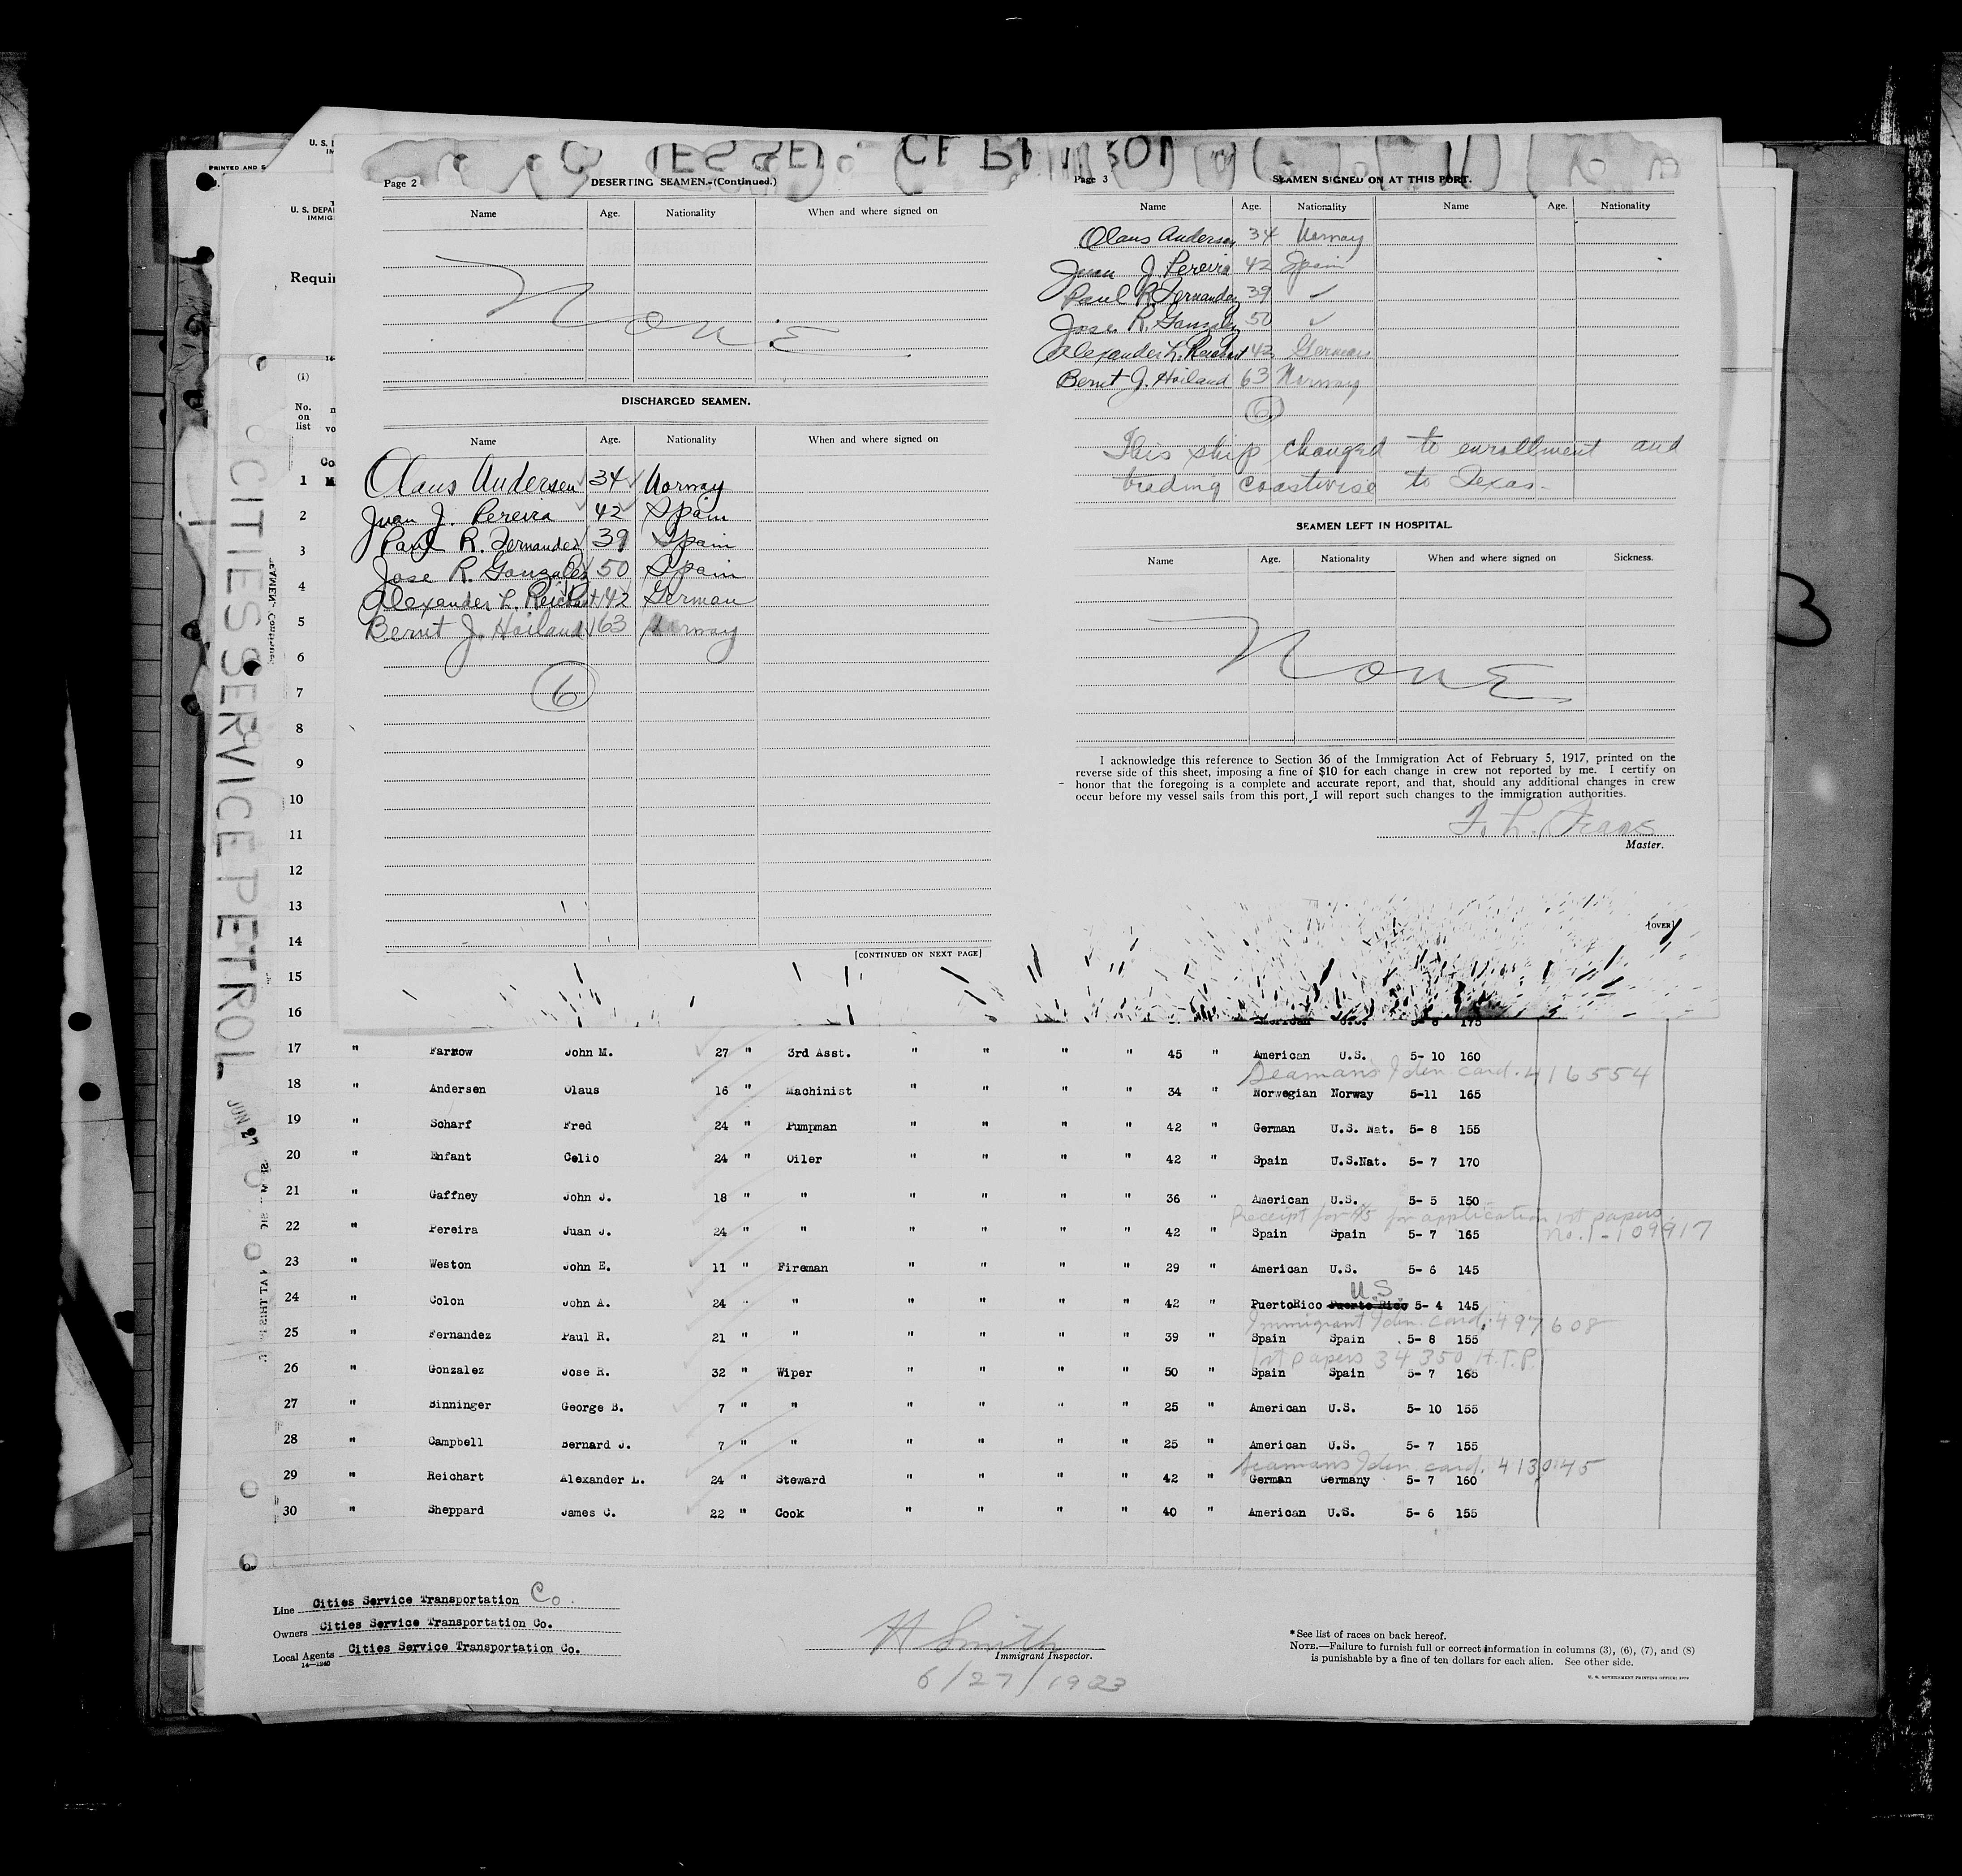 Page 2
DESERTING SEAMEN.-(Continued.)
Name Age. Nationality When and where signed on
None
DISCHARGED SEAMEN.
Name Age. Nationality When and where signed on
Olaus Andersen 34 Norway
Juan J. Pereira 42 Spain
Paul R. Fernandez 39 Spain
Jose R. Gonzalez 50 Spain
Alexander L. Reichart 42 German
Bernt J. Hoiland 63 Norway
6
[CONTINUED ON NEXT PAGE]
Page 3
SEAMEN SIGNED ON AT THIS PORT.
Name Age. Nationality Name Age. Nationality
Olaus Andersen 34 Norway
Juan J. Pereira 42 Spain
Paul R. Fernandez 39 ✓
Jose R. Gonzalez 50 ✓
Alexander L. Reichart 42 German
Bernt J. Hoiland 63 Norway
6
This ship changed to enrollment and
trading coastwise to Texas-
SEAMEN LEFT IN HOSPITAL.
Name Age. Nationality When and where signed on Sickness.
None
I acknowledge this reference to Section 36 of the Immigration Act of February 5, 1917, printed on the
reverse side of this sheet, imposing a fine of $10 for each change in crew not reported by me. I certify on
honor that the foregoing is a complete and accurate report, and that, should any additional changes in crew
occur before my vessel sails from this port, I will report such changes to the immigration authorities.
Master.
[OVER]
PRINTED AND S
U. S. DEPA
IMMIG
Requir
(1)
No.
on
list
CITIES SERVICE PETROL
1
2
3
4
5
6
7
8
9
10
11
12
13
14
15
16 American U.S. 5- 8 175
17 " Farnow John M. 27 " 3rd Asst. " " " " 45 " American U.S. 5- 10 160
Seamans Iden. card. 416554
18 " Andersen Olaus 16 " Machinist " " " " 34 " Norwegian Norway 5-11 165
19 " Scharf Fred 24 " Pumpman " " " " 42 " German U.S. Nat. 5- 8 155
20 " Enfant Celio 24 " Oiler " " " " 42 " Spain U.S.Nat. 5- 7 170
21 " Gaffney John J. 18 " " " " " " 36 " American U.S. 5- 5 150
Receipt for for application 1st papers.
No. 1-109917
22 " Pereira Juan J. 24 " " " " " " 42 " Spain Spain 5- 7 165
23 " Weston John E. 11 " Fireman " " " " 29 " American U.S. 5- 6 145
U.S
24 " Colon John A. 24 " " " " " " 42 " PuertoRico Puerto Rico 5- 4 145
Immigrant Iden. card. 497608
25 " Fernandez Paul R. 21 " " " " " " 39 " Spain Spain 5- 8 155
1st papers 34350 H.T.P.
26 " Gonzalez Jose R. 32 " Wiper " " " " 50 " Spain Spain 5- 7 165
27 " Binninger George B. 7 " " " " " " 25 " American U.S. 5- 10 155
28 " Campbell Bernard J. 7 " " " " " " 25 " American U.S. 5- 7 155
Seamans Iden. card. 4130145
29 " Reichart Alexander L. 24 " Steward " " " " 42 " German Germany 5- 7 160
30 " Sheppard James C. 22 " Cook " " " " 40 " American U.S. 5- 6 155
Line Cities Service Transportation Co.
Owners Cities Service Transportation Co.
Local Agents Cities Service Transportation Co.
14—1240
H Smith
Immigrant Inspector.
6/27/1933
*See list of races on back hereof.
NOTE.—Failure to furnish full or correct information in columns (3), (6), (7), and (8)
is punishable by a fine of ten dollars for each alien. See other side.
3